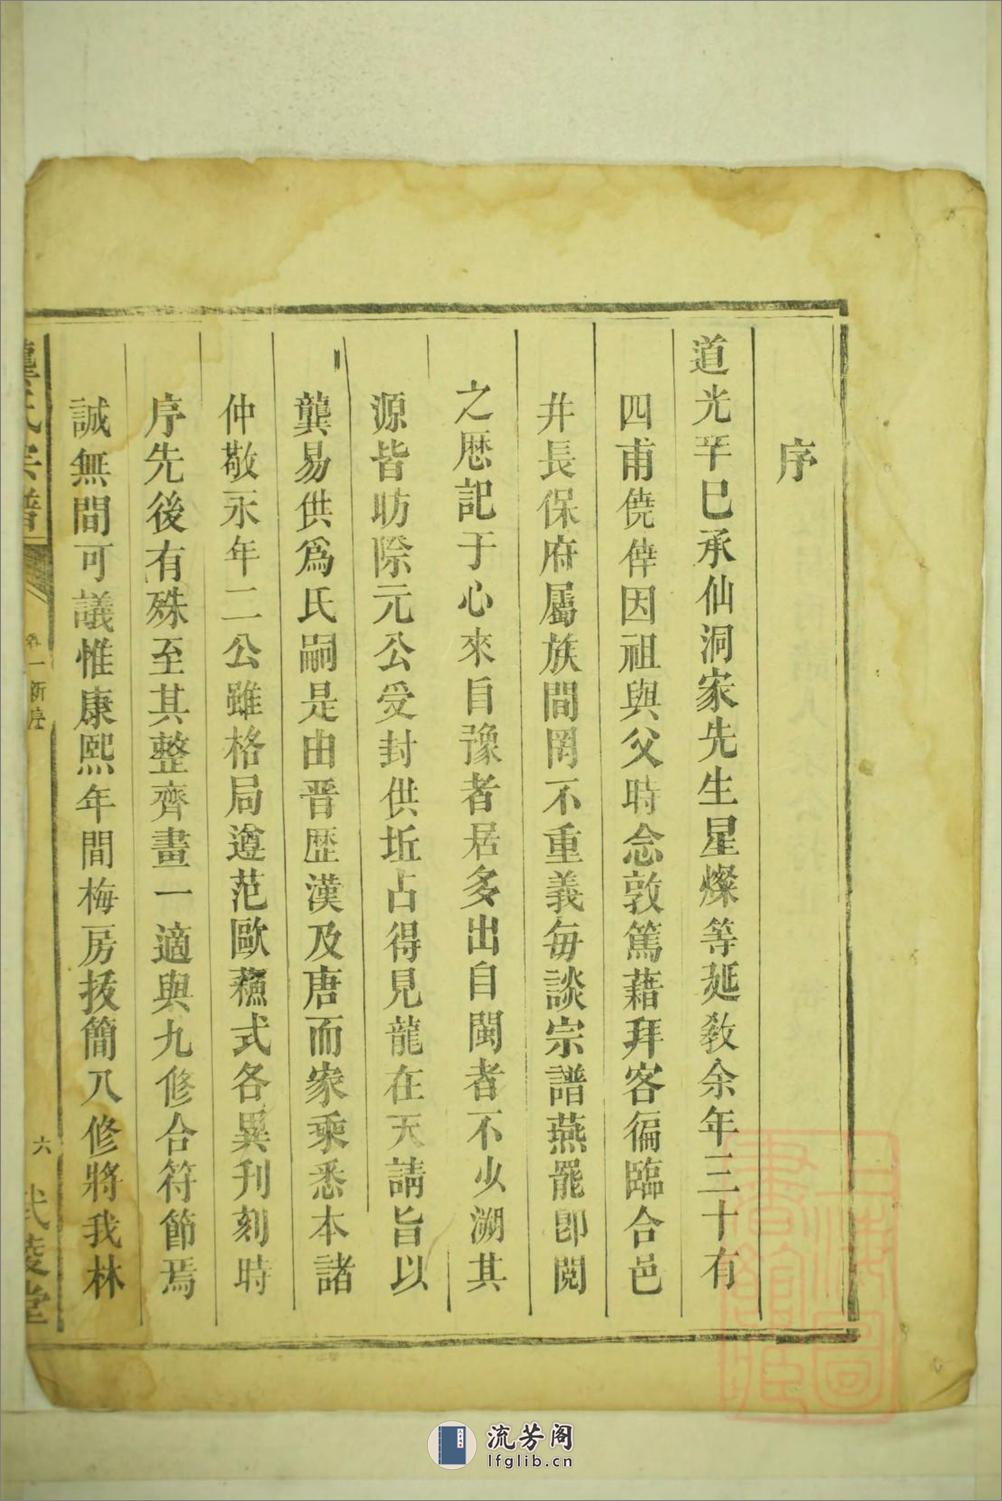 序
道光平巳承仙洞家先生星燦等延教余年三十有
四甫僥倖因祖與父時念敦篤藉拜客徧臨合邑
井長保府屬族間罔不重義每談宗譜燕罷卽閱
之厯記于心來自豫者居多出自閩者不少溯其
源皆昉際元公受封供坵占得見龍在天請旨以
龔易供爲氏嗣是由晋歷漢及唐而家乘悉本諸
仲敬永年二公雖格局遵范歐蘓式各異刊刻時
序先後有殊至其整齊畫一適與九修合符節焉
誠無間可議惟康熙年間梅房㧞簡八修將我林
龔氏宗譜
卷一新序
六
武陵堂
流芳阁
lfglib.cn